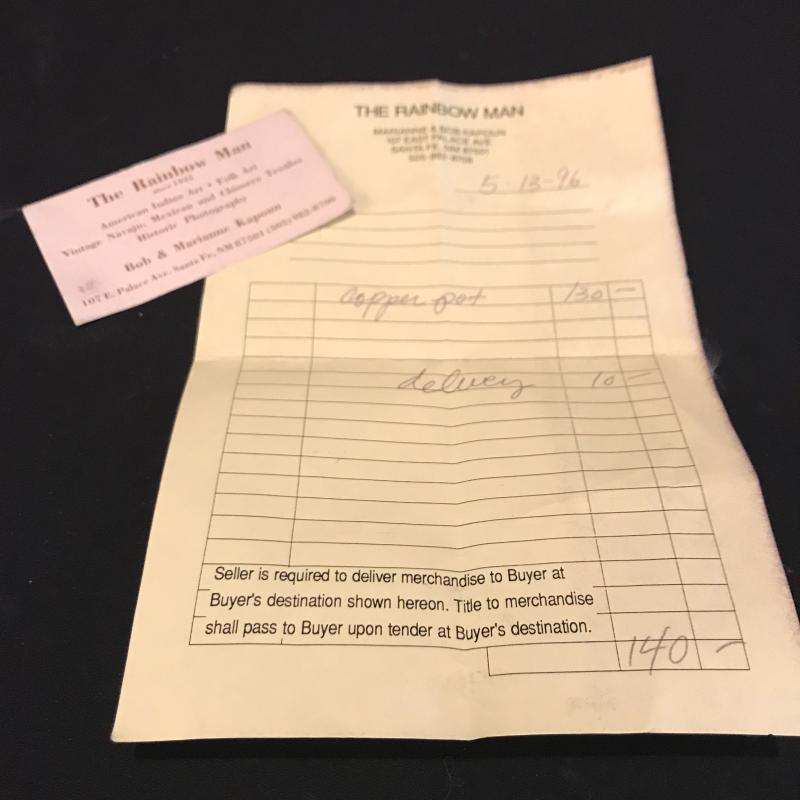 The Rainbow Man
since 1945
American Indian Art • Folk Art
Vintage Navajo, Mexican and Chimayo Textiles
Historic Photography
Bob & Marianne Kapoun
107 E. Palace Ave. Santa Fe, NM 87501 (505) 982-8706
THE RAINBOW MAN
MARIANNE & BOB KAPOUN
107 EAST PALACE AVE.
SANTA FE, NM 87501
505-982-8706
5-13-96
Copper pot 130 —
delivery 10 —
Seller is required to deliver merchandise to Buyer at
Buyer's destination shown hereon. Title to merchandise
shall pass to Buyer upon tender at Buyer's destination.
140 —